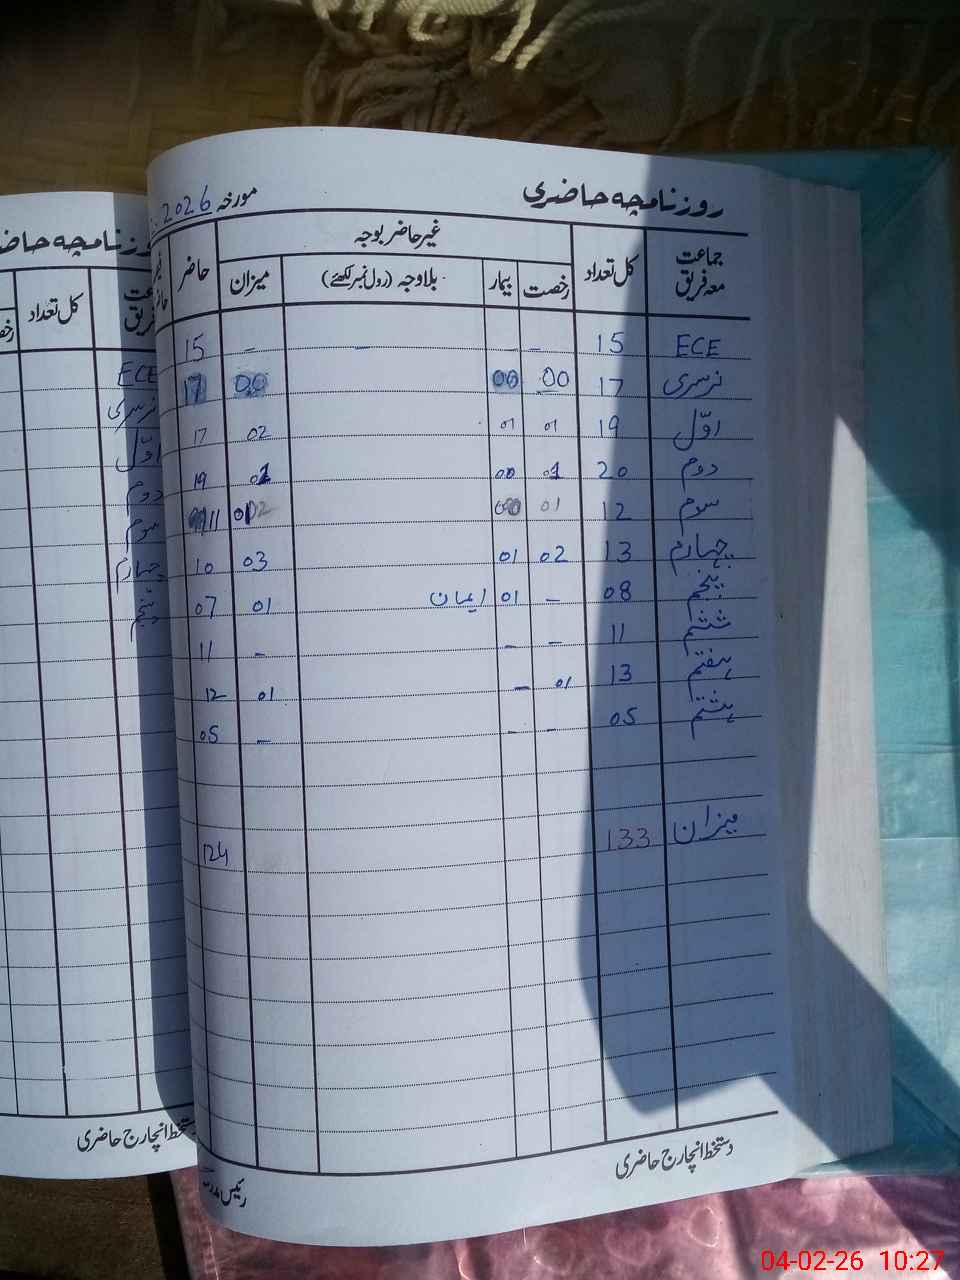 روزنامچہ حاضری مورخہ 2026
جماعت معہ فریق کل تعداد غیر حاضر بوجہ حاضر
رخصت بیمار بلاوجہ (رول نمبر لکھئے) میزان
ECE 15 – – – – 15
نرسری 17 00 00 00 17
اوّل 19 01 01 02 17
دوم 20 01 00 01 19
سوم 12 01 00 11
چہارم 13 02 01 03 10
پنجم 08 – 01 ایمان 01 07
ششم 11 – – – 11
ہفتم 13 01 – 01 12
ہشتم 05 – – – 05
میزان 133 124
دستخط انچارج حاضری
رئیس مدرسہ
روزنامچہ حاضری
کل تعداد
ECE
نرسری
اوّل
دوم
سوم
چہارم
پنجم
دستخط انچارج حاضری
04-02-26 10:27